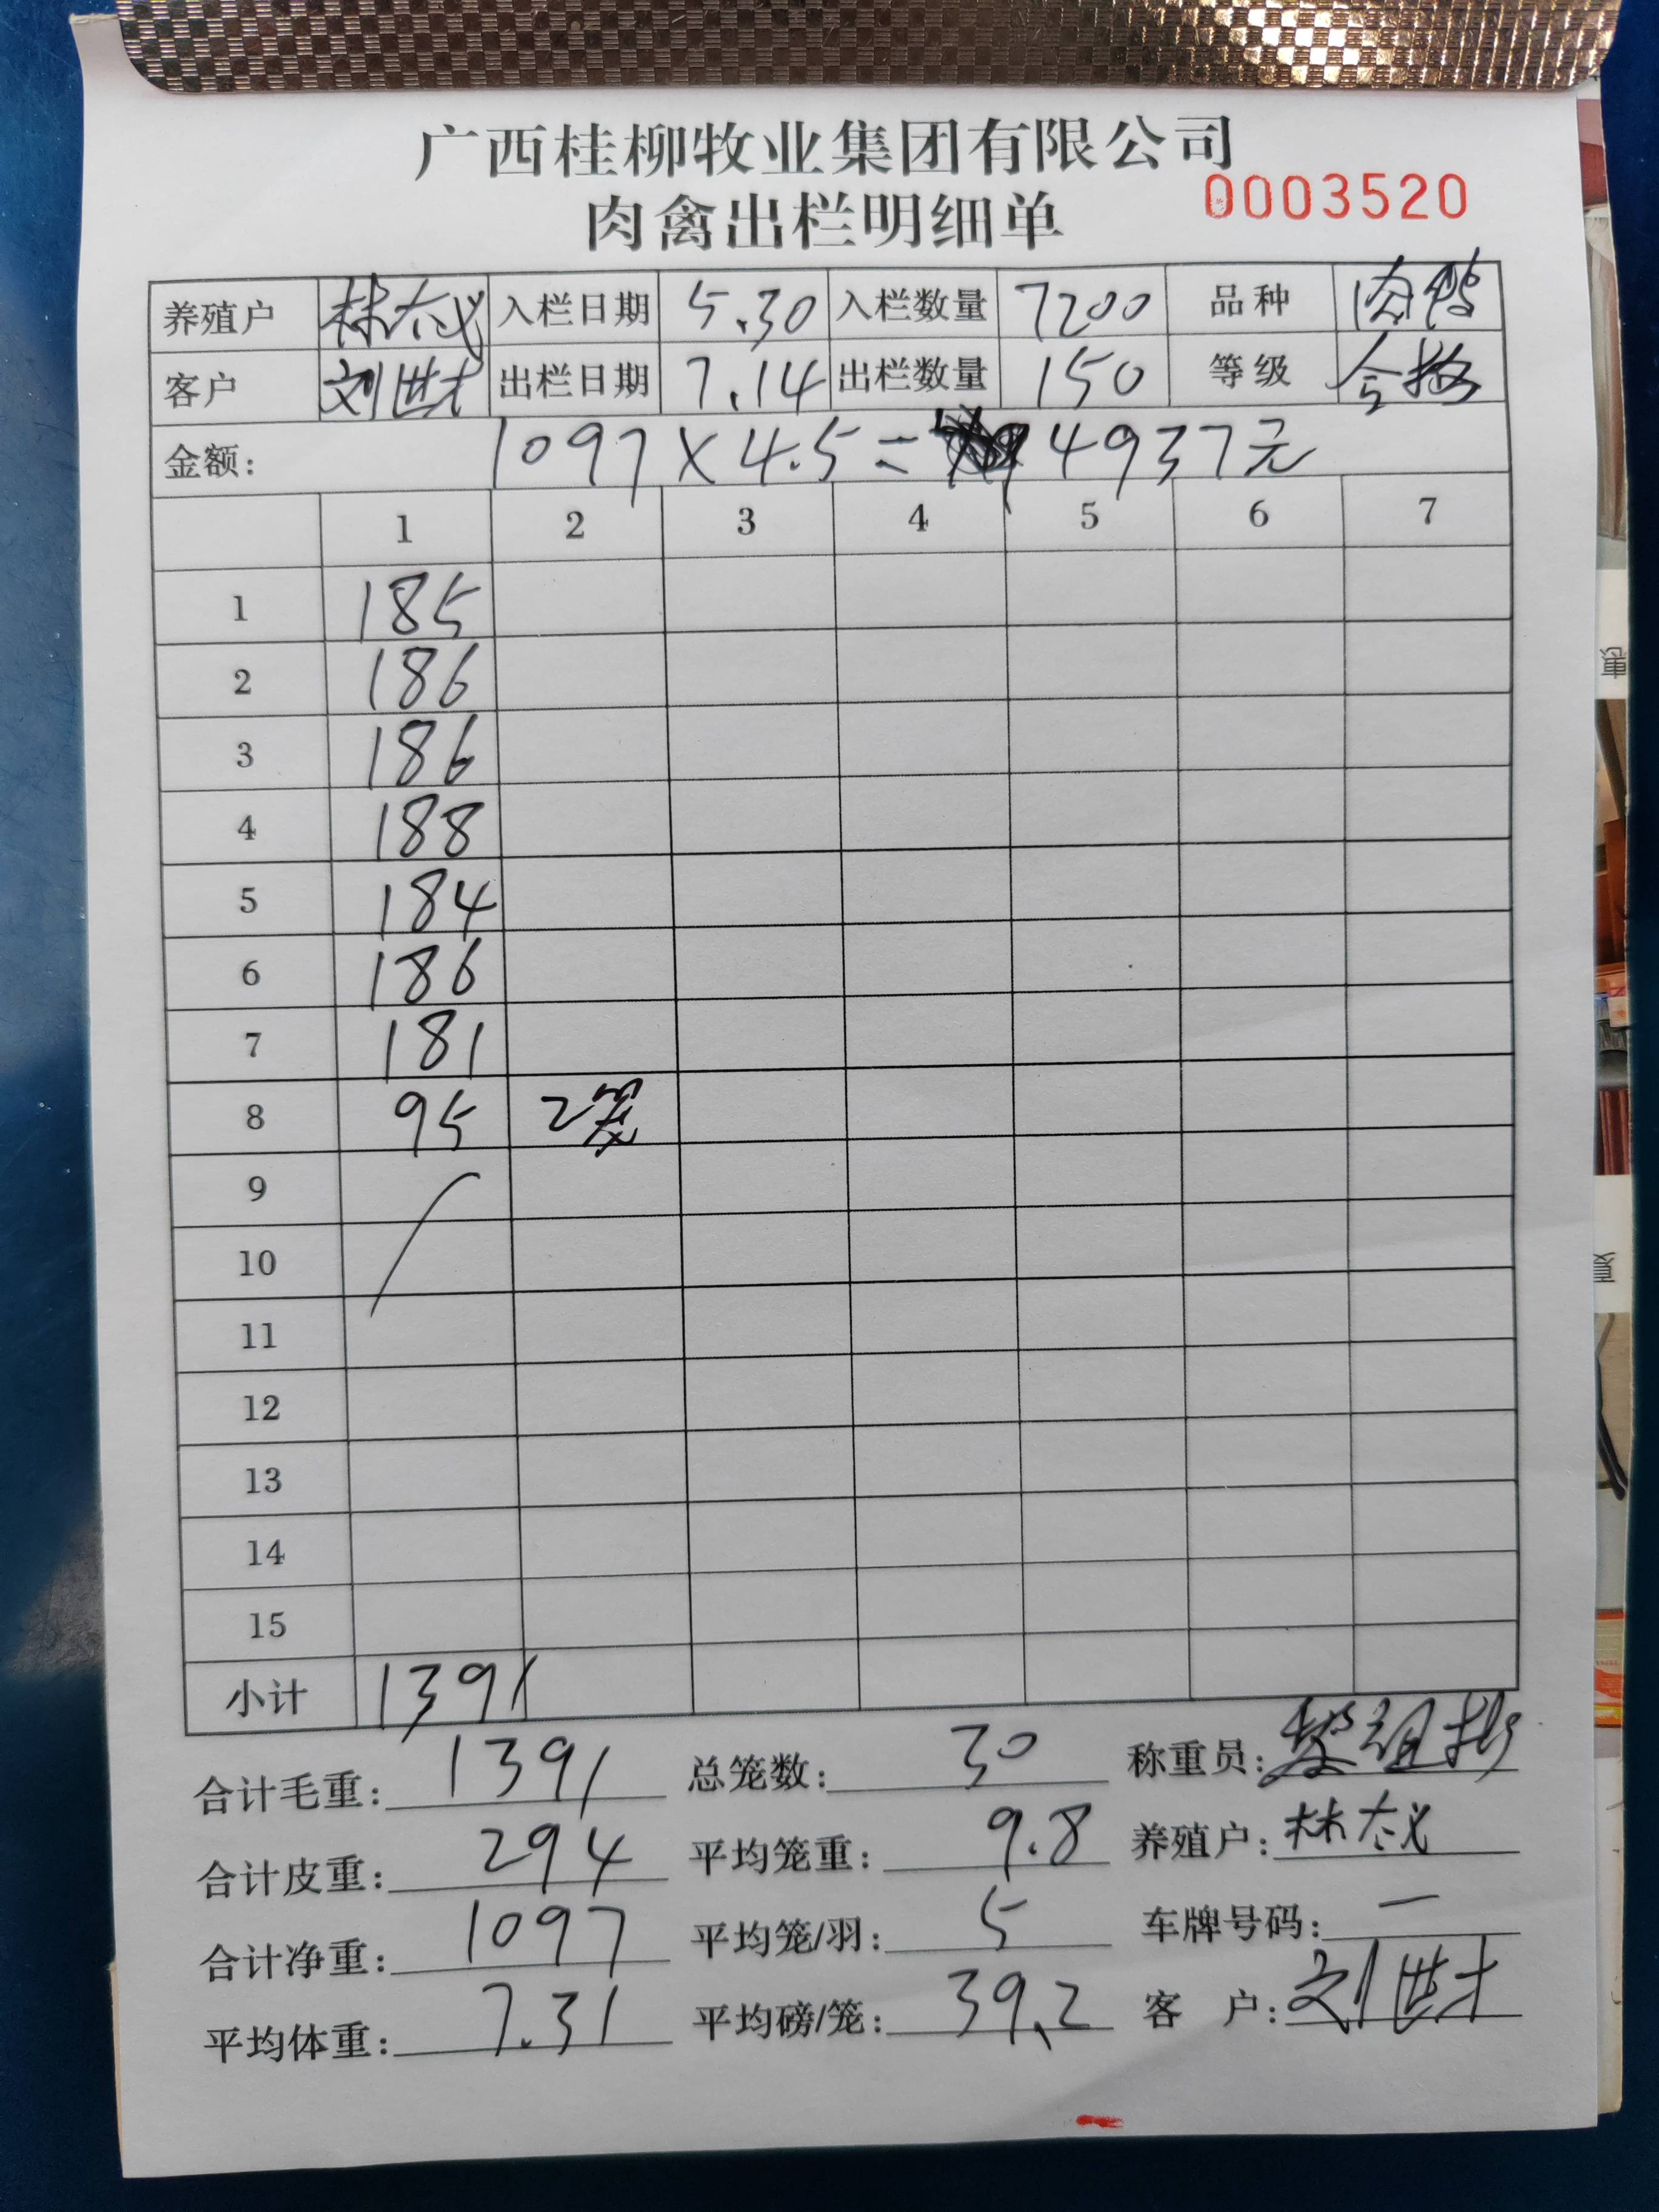 广西桂柳牧业集团有限公司
肉禽出栏明细单 0003520
养殖户 林太义 入栏日期 5.30 入栏数量 7200 品种 肉鸭
客户 刘世才 出栏日期 7.14 出栏数量 150 等级 合格
金额: 1097×4.5= 4937元
1 2 3 4 5 6 7
1 185
2 186
3 186
4 188
5 184
6 186
7 181
8 95 2笼
9
10
11
12
13
14
15
小计 1391
合计毛重: 1391 总笼数: 30 称重员:
合计皮重: 294 平均笼重: 9.8 养殖户: 林太义
合计净重: 1097 平均笼/羽: 5 车牌号码: 一
平均体重: 7.31 平均磅/笼: 39.2 客 户: 刘世才